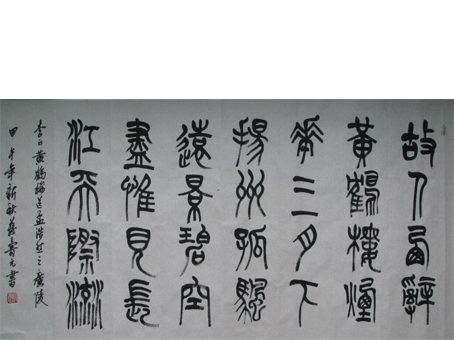 故人西辭
黃鶴樓煙
華三月下
揚州孤颿
遠景碧空
盡惟見長
江天際流
李白黃鶴樓送孟浩然之廣陵
甲午年新秋壽元書